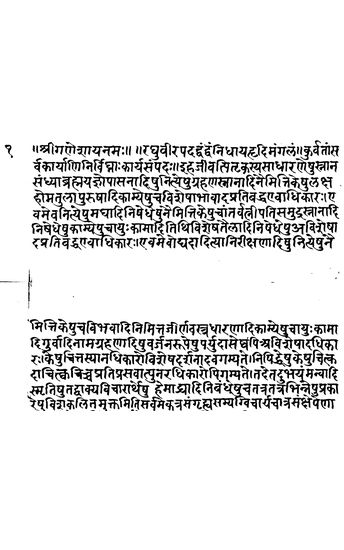 १ ॥श्रीगणेशायनमः॥ ॥रघुवीरपदद्वंद्वंनिधायहृदिमंगलं॥कुर्वतांस
र्वकार्याणिनिर्विघ्नाःकार्यसंपदः॥इहजीवत्पितृकस्यसाधारणेषुस्नान
संध्याब्रह्मयज्ञोपासनादिषुनित्येषुग्रहणस्नानादिनैमित्तिकेषुलक्ष
होमतुलापुरुषादिकाम्येषुचविशेषाभावादप्रतिबद्धएवाधिकारः॥ए
वमेवनित्येषुमघादिनिषेधेषुनैमित्तिकेषुचांतर्वत्नीपतिसमुद्रस्नानादि
निषेधेषुकाम्येषुचायुःकामादितिथिविशेषतैलादिनिषेधेषुअविशेषा
दप्रतिबद्धएवाधिकारः॥एवमेवोद्यदादित्यानिरीक्षणादिषुनित्येषुनै
मित्तिकेषुचविभवादिनिमित्तजीर्णवस्त्रधारणादिकाम्येषुचायुःकामा
दिगुर्वादिनामग्रहणादिषुवर्जनरूपेषुपर्युदासेष्वपिअविशेषादधिका
रः॥केषुचित्तस्यानधिकारोविशेषदर्शनादवगम्यते॥निषिद्धेषुकेषुचित्क
दाचित्कचिच्चप्रतिप्रसवात्पुनरधिकारोपिगम्यते॥तदेतदुभयंमन्वादि
स्मृतिषुतद्वाक्यविचारार्थेषुहेमाद्र्यादिनिबंधेषुचतत्रतत्रभिन्नेषुप्रका
रेषुविशकलितमुक्तमितिसर्वमेकत्रसंगृह्यसम्यग्विचार्यचात्रसंक्षेपेणा